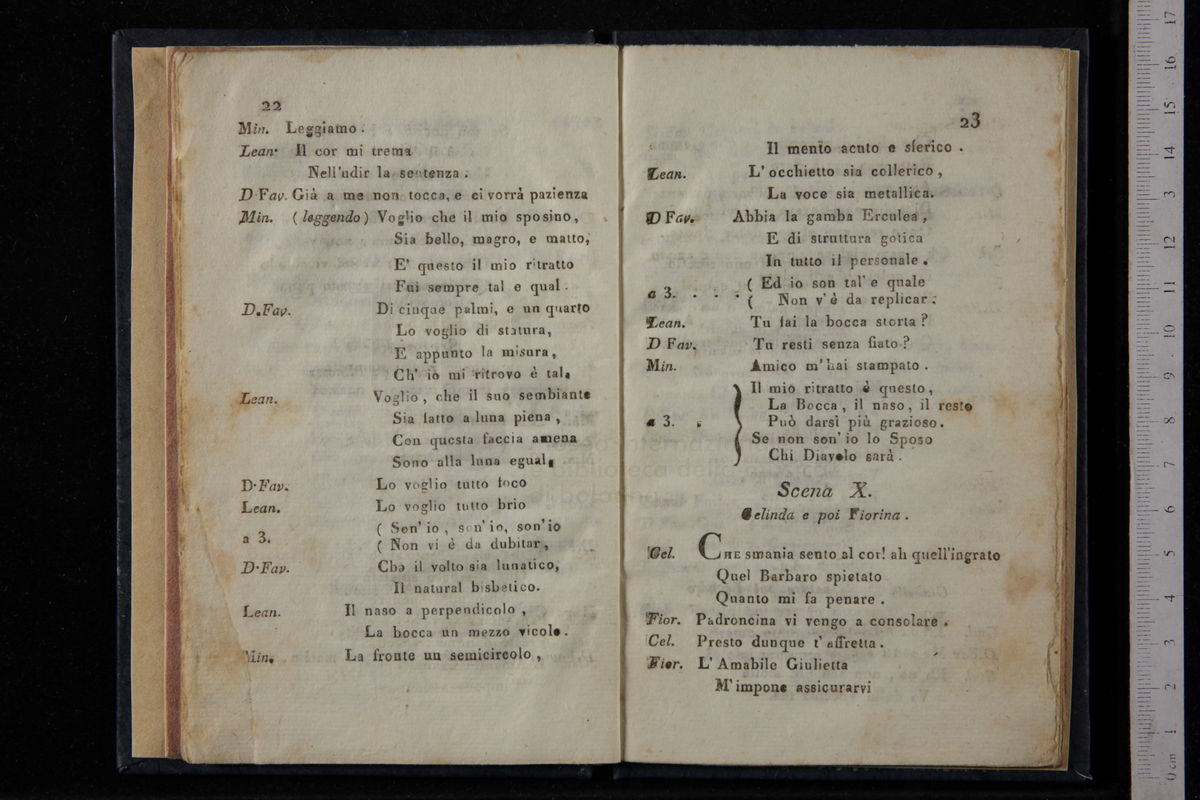 22
Min. Leggiamo.
Lean. Il cor mi trema
Nell'udir la sentenza.
D.Fav. Già a me non tocca, e ci vorrà pazienza
Min. (leggendo) Voglio che il mio sposino,
Sia bello, magro, e matto,
E' questo il mio ritratto
Fui sempre tal e qual.
D.Fav. Di cinque palmi, e un quarto
Lo voglio di statura,
E appunto la misura,
Ch' io mi ritrovo è tal.
Lean. Voglio, che il suo sembiante
Sia fatto a luna piena,
Con questa faccia amena
Sono alla luna egual.
D.Fav. Lo voglio tutto foco
Lean. Lo voglio tutto brio
a 3. ( Son' io, son' io, son' io
( Non vi è da dubitar,
D.Fav. Che il volto sia lunatico,
Il natural bisbetico.
Lean. Il naso a perpendicolo,
La bocca un mezzo vicolo.
Min. La fronte un semicircolo,
23
Il mento acuto e sferico.
Lean. L' occhietto sia collerico,
La voce sia metallica.
D Fav. Abbia la gamba Erculea,
E di struttura gotica
In tutto il personale.
a 3. . . . ( Ed io son tal' e quale
( Non v'è da replicar.
Lean. Tu fai la bocca storta?
D Fav. Tu resti senza fiato?
Min. Amico m' hai stampato.
Il mio ritratto è questo,
La Bocca, il naso, il resto
a 3. . Può darsi più grazioso.
Se non son' io lo Sposo
Chi Diavolo sarà.
Scena X.
Celinda e poi Fiorina.
Cel. CHE smania sento al cor! ah quell'ingrato
Quel Barbaro spietato
Quanto mi fa penare.
Fior. Padroncina vi vengo a consolare.
Cel. Presto dunque t' affretta.
Fior. L' Amabile Giulietta
M' impone assicurarvi
0 cm 1 2 3 4 5 6 7 8 9 10 11 12 3 14 15 16 17